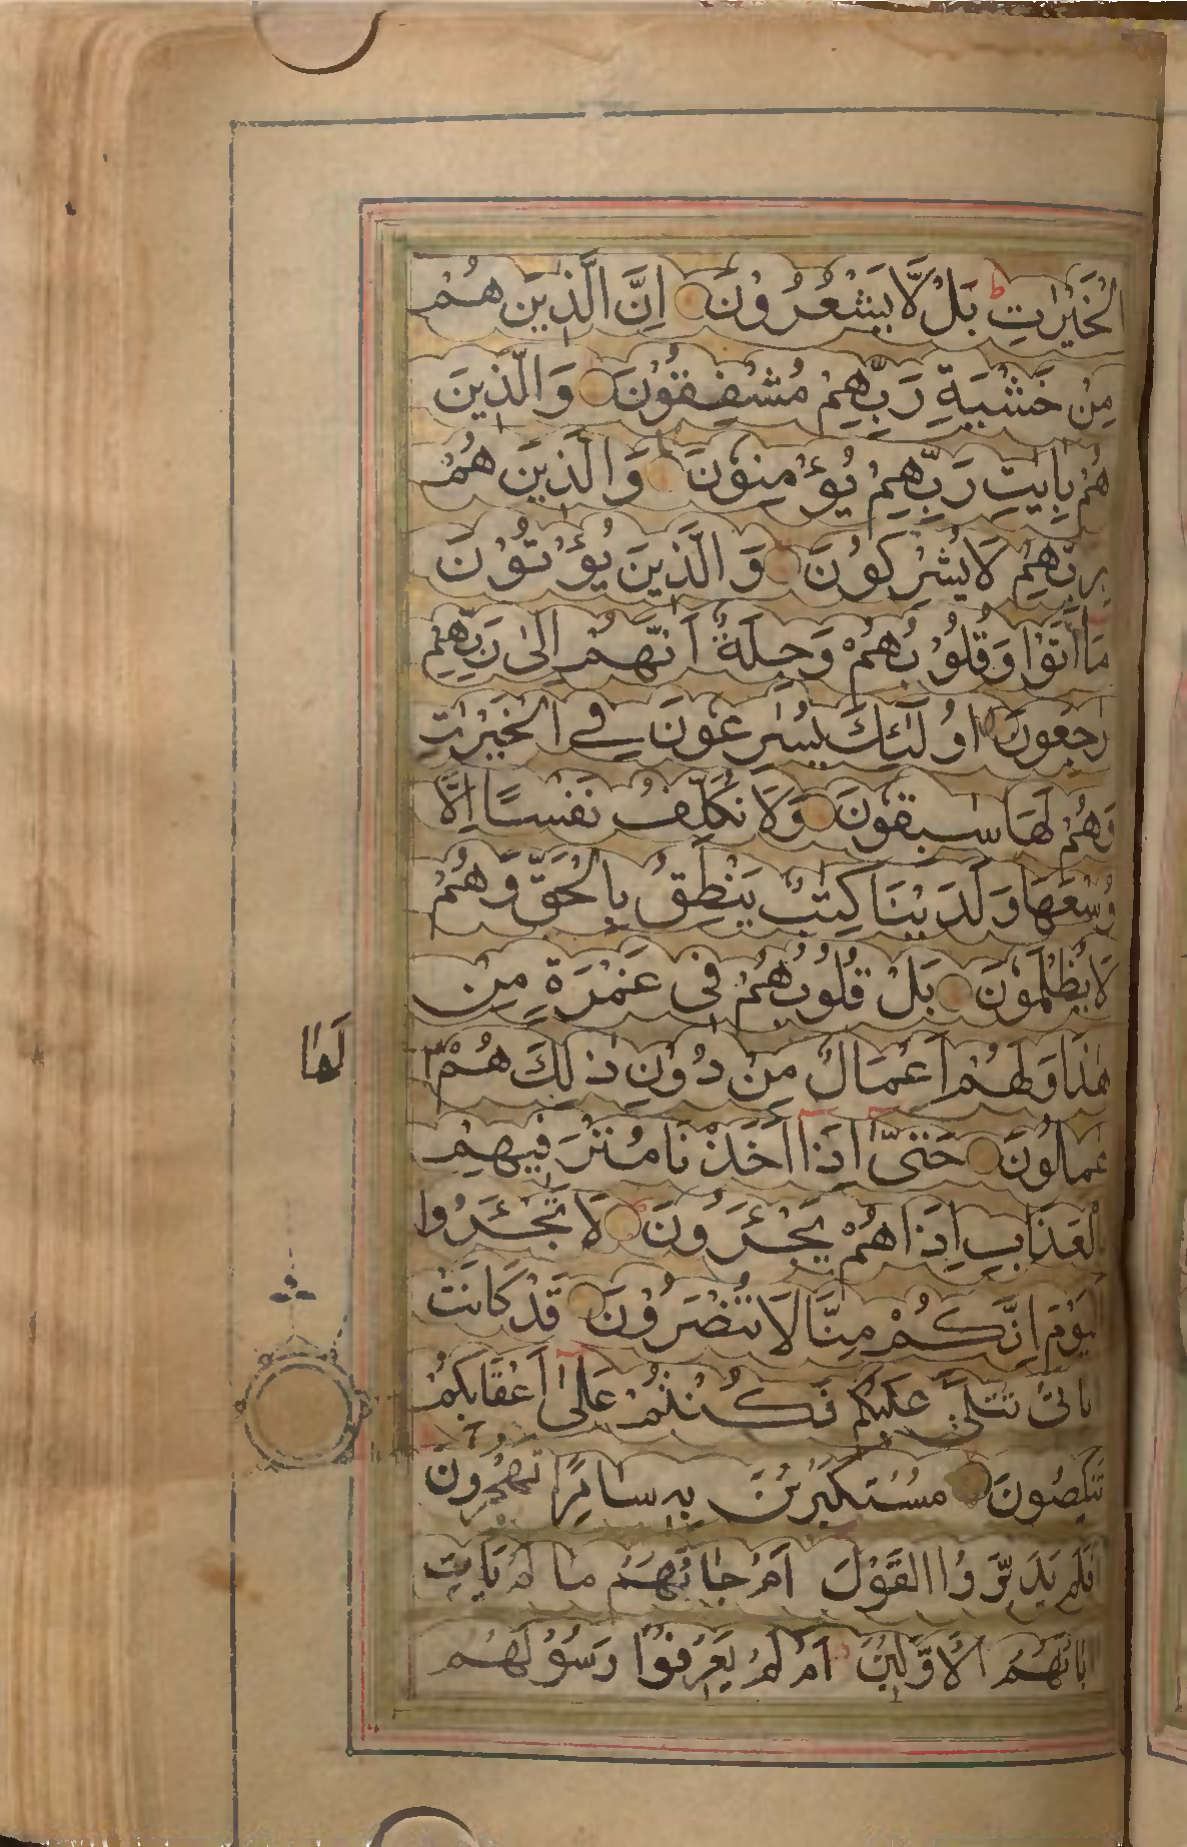 الْخَيْرٰتِ ط بَلْ لَّا يَشْعُرُوْنَ اِنَّ الَّذِيْنَ هُمْ
مِنْ خَشْيَةِ رَبِّهِمْ مُشْفِقُوْنَ وَالَّذِيْنَ
هُمْ بِاٰيٰتِ رَبِّهِمْ يُؤْمِنُوْنَ وَالَّذِيْنَ هُمْ
بِرَبِّهِمْ لَا يُشْرِكُوْنَ وَالَّذِيْنَ يُؤْتُوْنَ
مَا اٰتَوْا وَقُلُوْبُهُمْ وَجِلَةٌ اَنَّهُمْ اِلٰى رَبِّهِمْ
رٰجِعُوْنَ اُولٰٓئِكَ يُسٰرِعُوْنَ فِي الْخَيْرٰتِ
وَهُمْ لَهَا سٰبِقُوْنَ وَلَا نُكَلِّفُ نَفْسًا اِلَّا
وُسْعَهَا وَلَدَيْنَا كِتٰبٌ يَنْطِقُ بِالْحَقِّ وَهُمْ
لَا يُظْلَمُوْنَ بَلْ قُلُوْبُهُمْ فِى غَمْرَةٍ مِنْ
هٰذَا وَلَهُمْ اَعْمَالٌ مِنْ دُوْنِ ذٰلِكَ هُمْ
لَهَا
عٰمِلُوْنَ حَتّٰىٓ اِذَا اَخَذْنَا مُتْرَفِيْهِمْ
بِالْعَذَابِ اِذَا هُمْ يَجْئَرُوْنَ لَا تَجْئَرُوا
الْيَوْمَ اِنَّكُمْ مِنَّا لَا تُنْصَرُوْنَ قَدْ كَانَتْ
اٰيَاتِىْ تُتْلٰى عَلَيْكُمْ فَكُنْتُمْ عَلٰٓى اَعْقَابِكُمْ
تَنْكِصُوْنَ مُسْتَكْبِرِيْنَ بِهٖ سَامِرًا تَهْجُرُوْنَ
اَفَلَمْ يَدَّبَّرُوا الْقَوْلَ اَمْ جَاءَهُمْ مَا لَمْ يَاْتِ
اٰبَاءَهُمُ الْاَوَّلِيْنَ اَمْ لَمْ يَعْرِفُوْا رَسُوْلَهُمْ